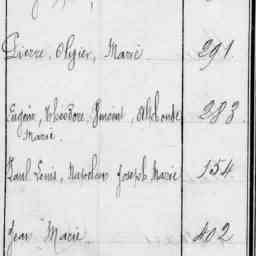 Pierre, Olivier, Marie 291
Eugène, Théodore, Vincent, Alphonse 283
Marie.
Paul Louis, Napoléon Joseph Marie 154
Jean Marie 402